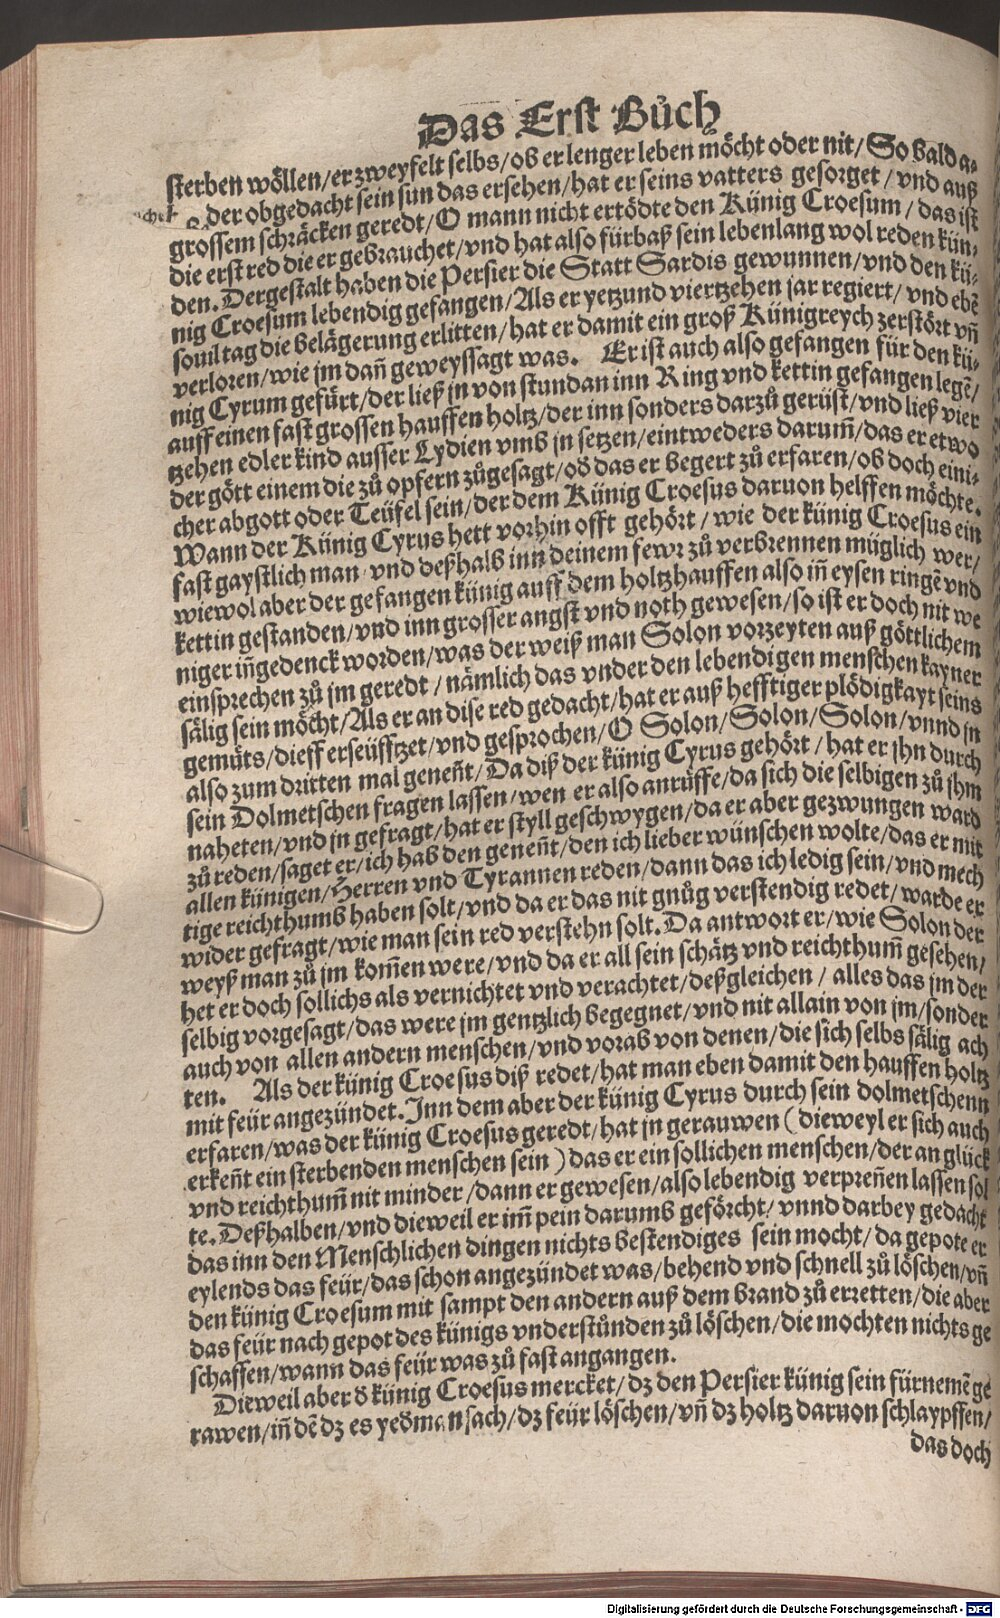 Das Erst Bůch
sterben wöllen/er zweyfelt selbs/ob er lenger leben möcht oder nit/So bald a-
der obgedacht sein sun das ersehen/hat er seins vatters gesorget/vnd auß
grossem schräcken geredt/O mann nicht ertödte den Künig Croesum/das ist
die erst red die er gebrauchet/vnd hat also fürbaß sein lebenlang wol reden kün-
den. Dergestalt haben die Persier die Statt Sardis gewunnen/vnd den kü-
nig Croesum lebendig gefangen/Als er yetzund viertzehen jar regiert/vnd ebē
souil tag die belägerung erlitten/hat er damit ein groß Künigreych zerstört vñ
verloren/wie jm dañ geweyssagt was. Er ist auch also gefangen für den kü-
nig Cyrum gefürt/der ließ jn von stundan inn Ring vnd kettin gefangen legē/
auff einen fast grossen hauffen holtz/der inn sonders darzů gerüst/vnd ließ vier
tzehen edler kind ausser Lydien vmb jn setzen/eintweders darum̄/das er etwo
der gött einem die zů opfern zůgesagt/od̄ das er begert zů erfaren/ob doch eini-
cher abgott oder Teüfel sein/der dem Künig Croesus daruon helffen möchte.
Wann der Künig Cyrus hett vorhin offt gehört/wie der künig Croesus ein
fast gaystlich man vnd deßhalb inn deinem fewr zů verbrennen müglich wer/
wiewol aber der gefangen künig auff dem holtzhauffen also iñ eysen ringē vnd
kettin gestanden/vnd inn grosser angst vnd noth gewesen/so ist er doch nit we
niger iñgedenck worden/was der weiß man Solon vorzeyten auß göttlichem
einsprechen zů jm geredt/nämlich das vnder den lebendigen menschen kayner
sälig sein möcht/Als er an dise red gedacht/hat er auß hefftiger plödigkayt seins
gemüts/dieff erseüfftzet/vnd gesprochen/O Solon/Solon/Solon/vnnd jn
also zum dritten mal geneñt/Da diß der künig Cyrus gehört/hat er jhn durch
sein Dolmetschen fragen lassen/wen er also anrüffe/da sich die selbigen zů jhm
naheten/vnd jn gefragt/hat er styll geschwygen/da er aber gezwungen ward
zů reden/saget er/ich hab den geneñt/den ich lieber wünschen wolte/das er mit
allen künigen/Herren vnd Tyrannen reden/dann das ich ledig sein/vnd mech
tige reichthumb haben solt/vnd da er das nit gnůg verstendig redet/warde er
wider gefragt/wie man sein red verstehn solt. Da antwort er/wie Solon der
weyß man zů jm kom̄en were/vnd da er all sein schätz vnd reichthum̄ gesehen/
het er doch sollichs als vernichtet vnd verachtet/deßgleichen/alles das jm der
selbig vorgesagt/das were jm gentzlich begegnet/vnd nit allain von jm/sonder
auch von allen andern menschen/vnd vorab von denen/die sich selbs sälig ach
ten. Als der künig Croesus diß redet/hat man eben damit den hauffen holtz
mit feür angezündet. Inn dem aber der künig Cyrus durch sein dolmetschenn
erfaren/was der künig Croesus geredt/hat jn gerauwen (dieweyl er sich auch
erkeñt ein sterbenden menschen sein) das er ein sollichen menschen/der an glück
vnd reichthum̄ nit minder/dann er gewesen/also lebendig verpreñen lassen sol
te. Deßhalben/vnd dieweil er im̄ pein darumb geförcht/vnnd darbey gedacht
das inn den Menschlichen dingen nichts bestendiges sein mocht/da gepote er
eylends das feür/das schon angezündet was/behend vnd schnell zů löschen/vñ
den künig Croesum mit sampt den andern auß dem brand zů erretten/die aber
das feür nach gepot des künigs vnderstůnden zů löschen/die mochten nichts ge
schaffen/wann das feür was zů fast angangen.
Dieweil aber d̄ künig Croesus mercket/dz den Persier künig sein fürnemē ge
rawen/iñ dē dz es yed̄man sach/dz feür löschen/vñ dz holtz daruon schlaypffen/
das doch
Digitalisierung gefördert durch die Deutsche Forschungsgemeinschaft - DFG